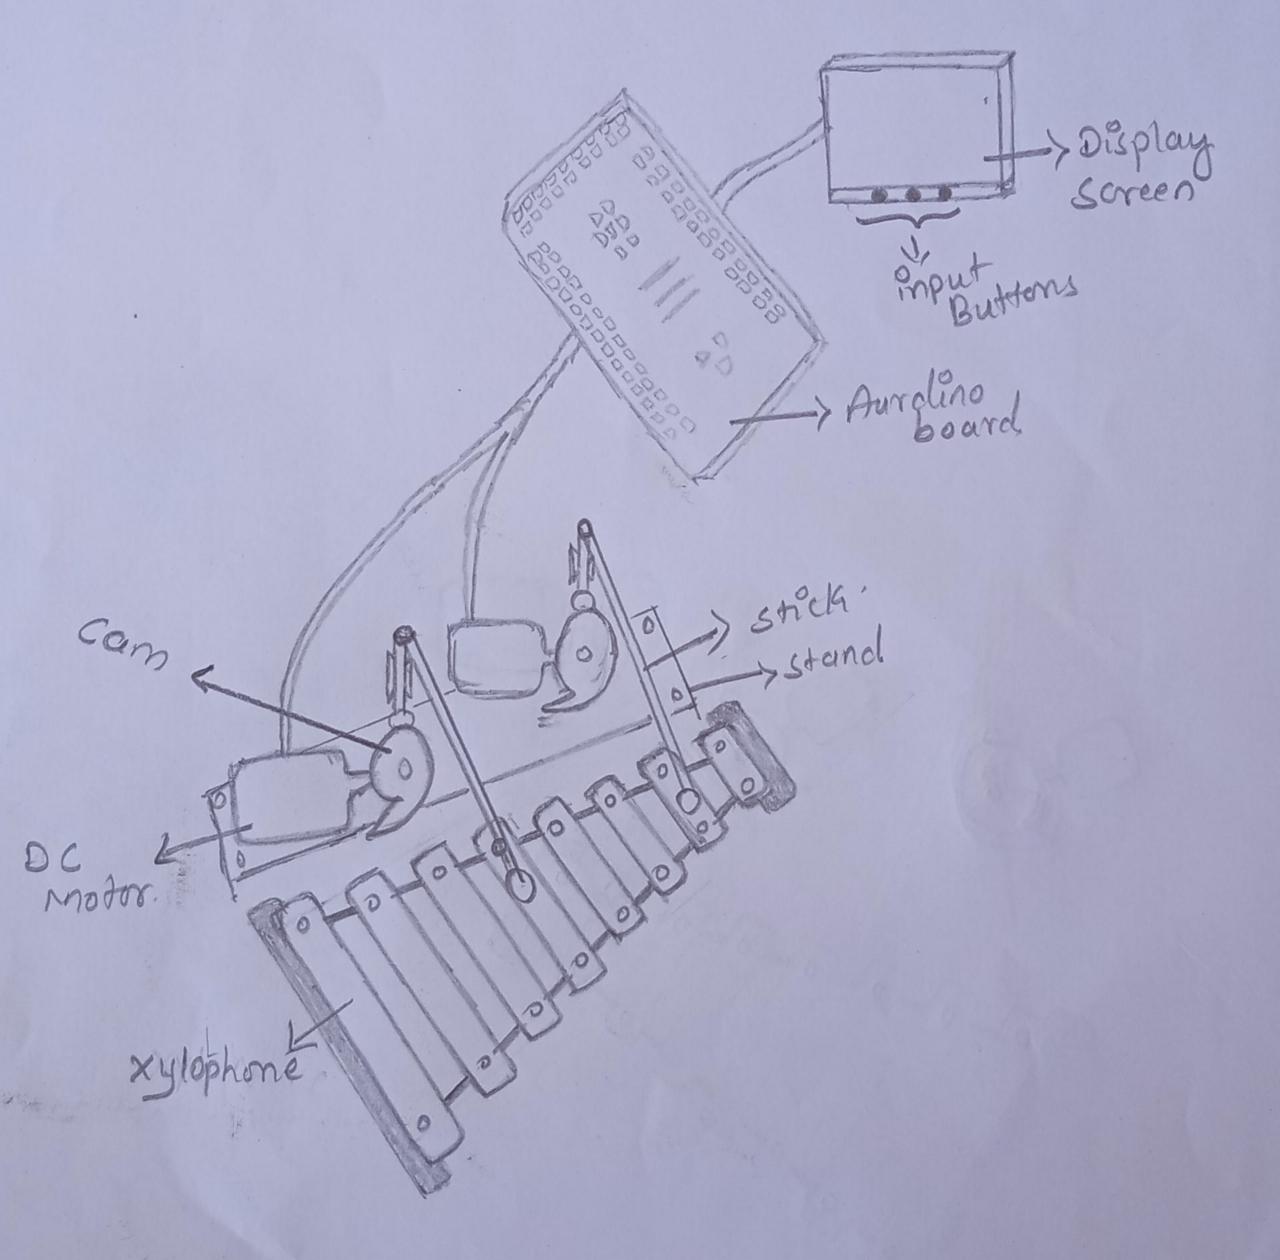 Display
screen
input
Buttons
Aurdino
board
stick
stand
Cam
DC
Motor.
xylophone